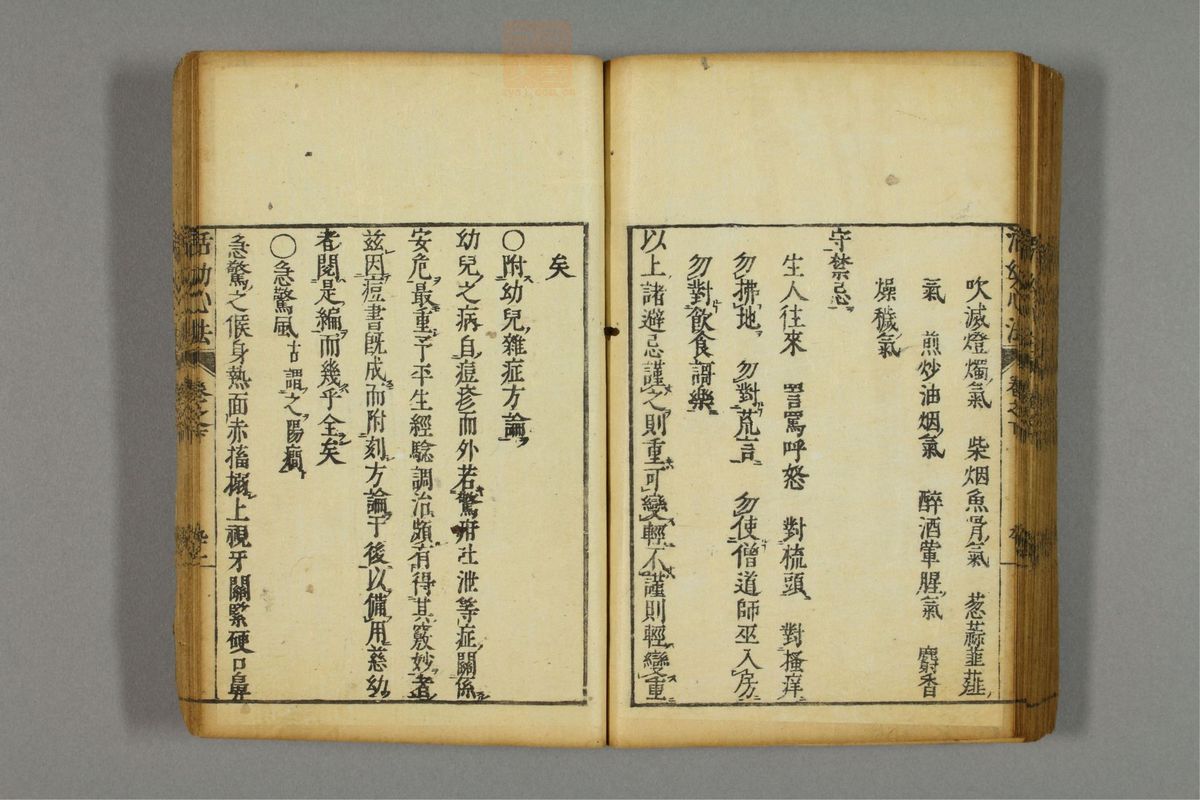 吹滅燈燭氣　柴烟魚骨氣　葱蒜韮薤
氣　煎炒油烟氣　醉酒葷腥氣　麝香
燥穢氣
守禁忌
生人往來　詈罵呼怒　對梳頭　對搔痒
勿拂地　勿對荒言　勿使僧道師巫入房
勿對飲食謌樂
以上諸避忌謹之則重可變輕不謹則輕變重
矣
〇附幼兒雜症方論
幼兒之病自痘疹而外若驚疳吐泄等症關係
安危最重予平生經驗調治頗有得其竅妙者
兹因痘書既成而附刻方論于後以備用慈幼
者閱是編而幾乎全矣
〇急驚風古謂之陽癇
急驚之候身熱面赤搐搦上視牙關緊硬口鼻
活幼心法
卷之